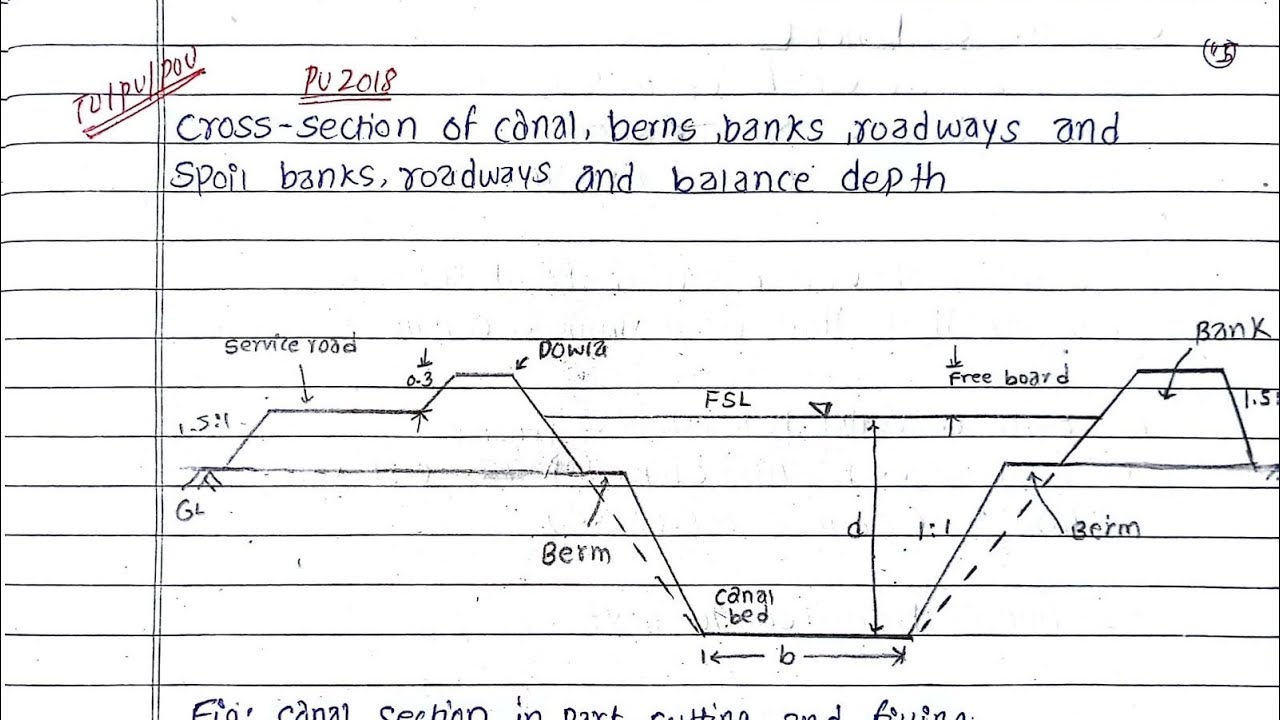 TU/PU/POU
PU 2018
"5"
Cross-section of canal, berns, banks, roadways and
Spoil banks, roadways and balance depth
Service road
Dowla
Bank
0.3
Free board
FSL
1.5:1
1.5:
GL
d
1:1
Berm
Berm
canal
bed
b
Fig: canal section in part cutting and filling.